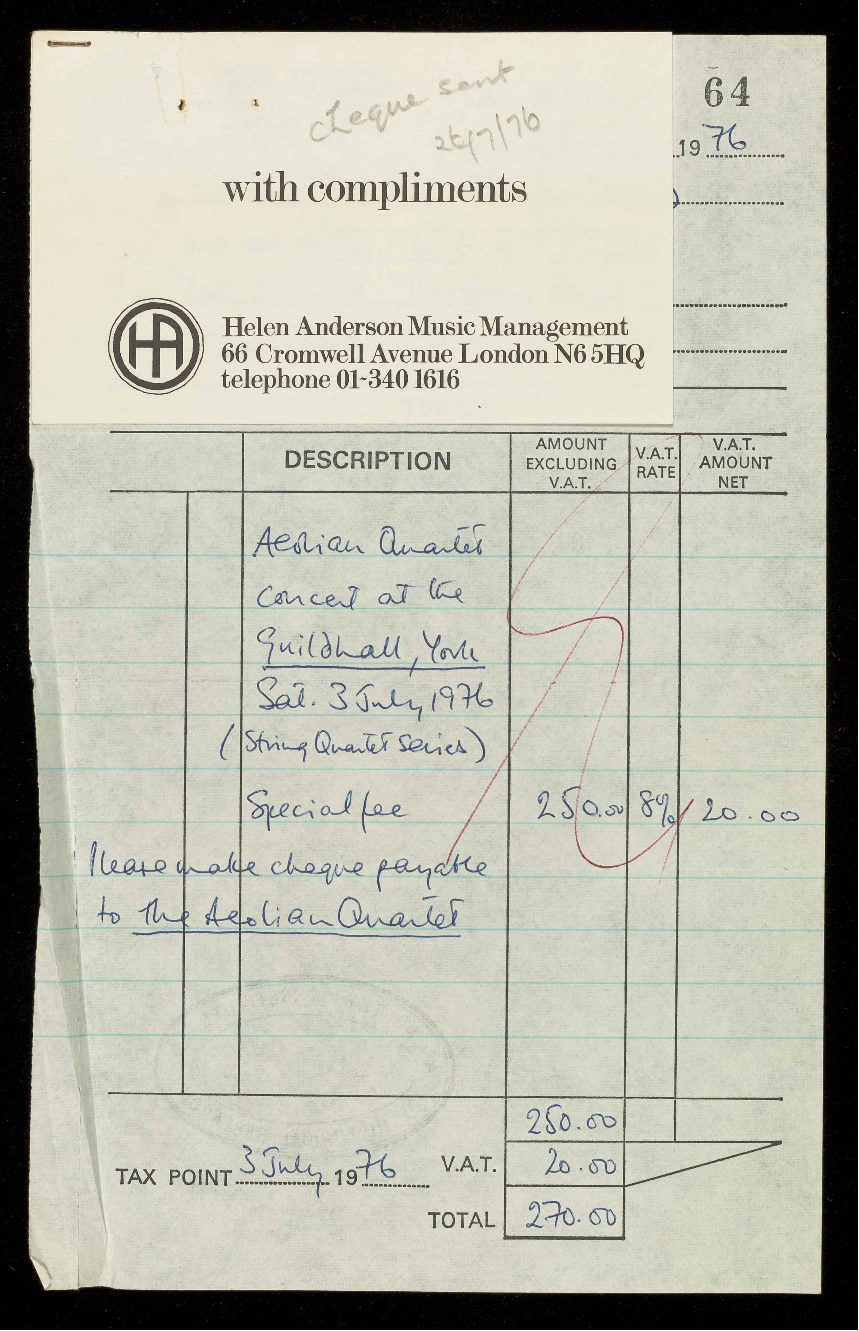 cheque sent
26/7/76
with compliments
HA
Helen Anderson Music Management
66 Cromwell Avenue London N6 5HQ
telephone 01-340 1616
64
19 76
DESCRIPTION
AMOUNT EXCLUDING V.A.T.
V.A.T. RATE
V.A.T. AMOUNT NET
Aeolian Quartet
Concert at the
Guildhall, York
Sat. 3 July 1976
(String Quartet Series)
Special fee 250.00 8% 20.00
Please make cheque payable
to The Aeolian Quartet
250.00
TAX POINT 3 July 1976 V.A.T. 20.00
TOTAL 270.00